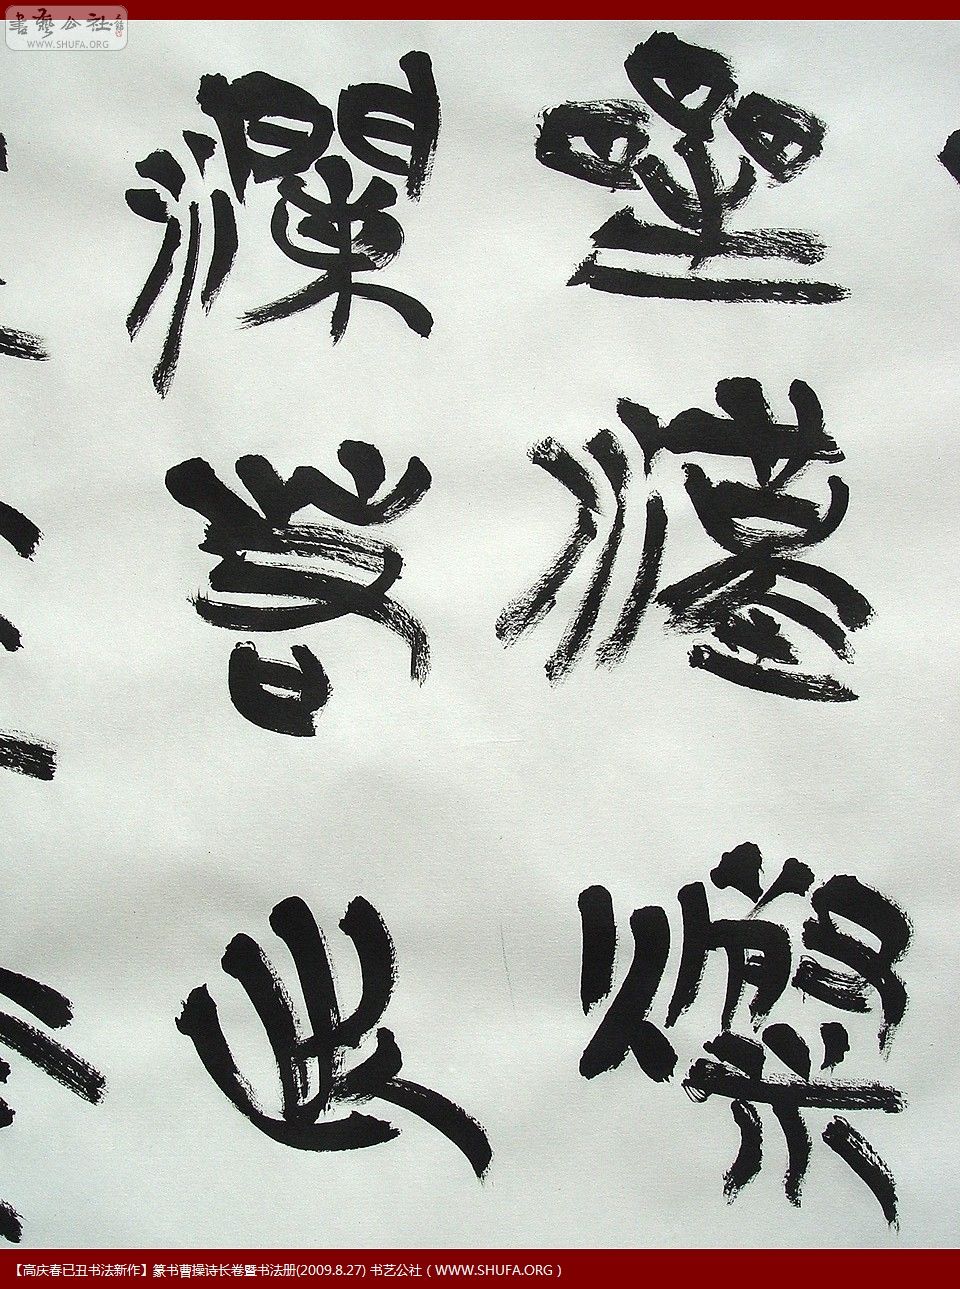 書藝公社
WWW.SHUFA.ORG
星漢燦
瀾若出
【高庆春已丑书法新作】篆书曹操诗长卷暨书法册(2009.8.27) 书艺公社 ( WWW.SHUFA.ORG )